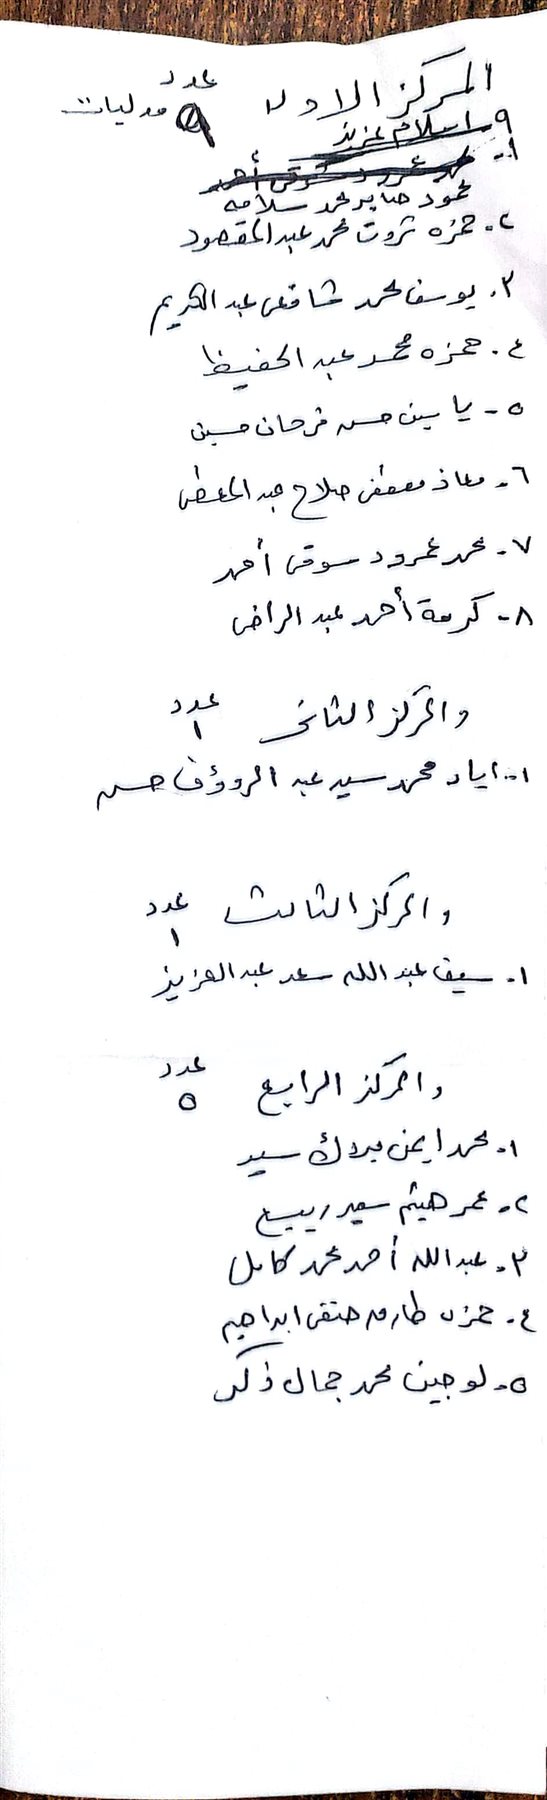 المركز الاول
عدد
٩ مدليات
٩- اسلام عزيز
١- محمد عمرو شوقى أحمد
محمود صابر محمد سلامه
٢- حمزه ثروت محمد عبدالمقصود
٣. يوسف محمد شافعى عبد الكريم
٤. حمزه محمد عبد الحفيظ
٥- ياسين حسن فرحان حسين
٦- معاذ مصطفى صلاح عبد المعطى
٧- محمد عمرو سوقى أحمد
٨- كريمة أحمد عبد الراضى
والمركز الثانى عدد
١
١- اياد محمد سيد عبد الرووف حسن
والمركز الثالث عدد
١
١- سيف عبد الله سعد عبد العزيز
والمركز الرابع عدد
٥
١- محمد ايمن مبارك سيد
٢- عمر هيثم سيد ربيع
٣- عبدالله أحمد محمد كامل
٤- حمزه طارق حنفى ابراهيم
٥- لوجين محمد جمال ذكى